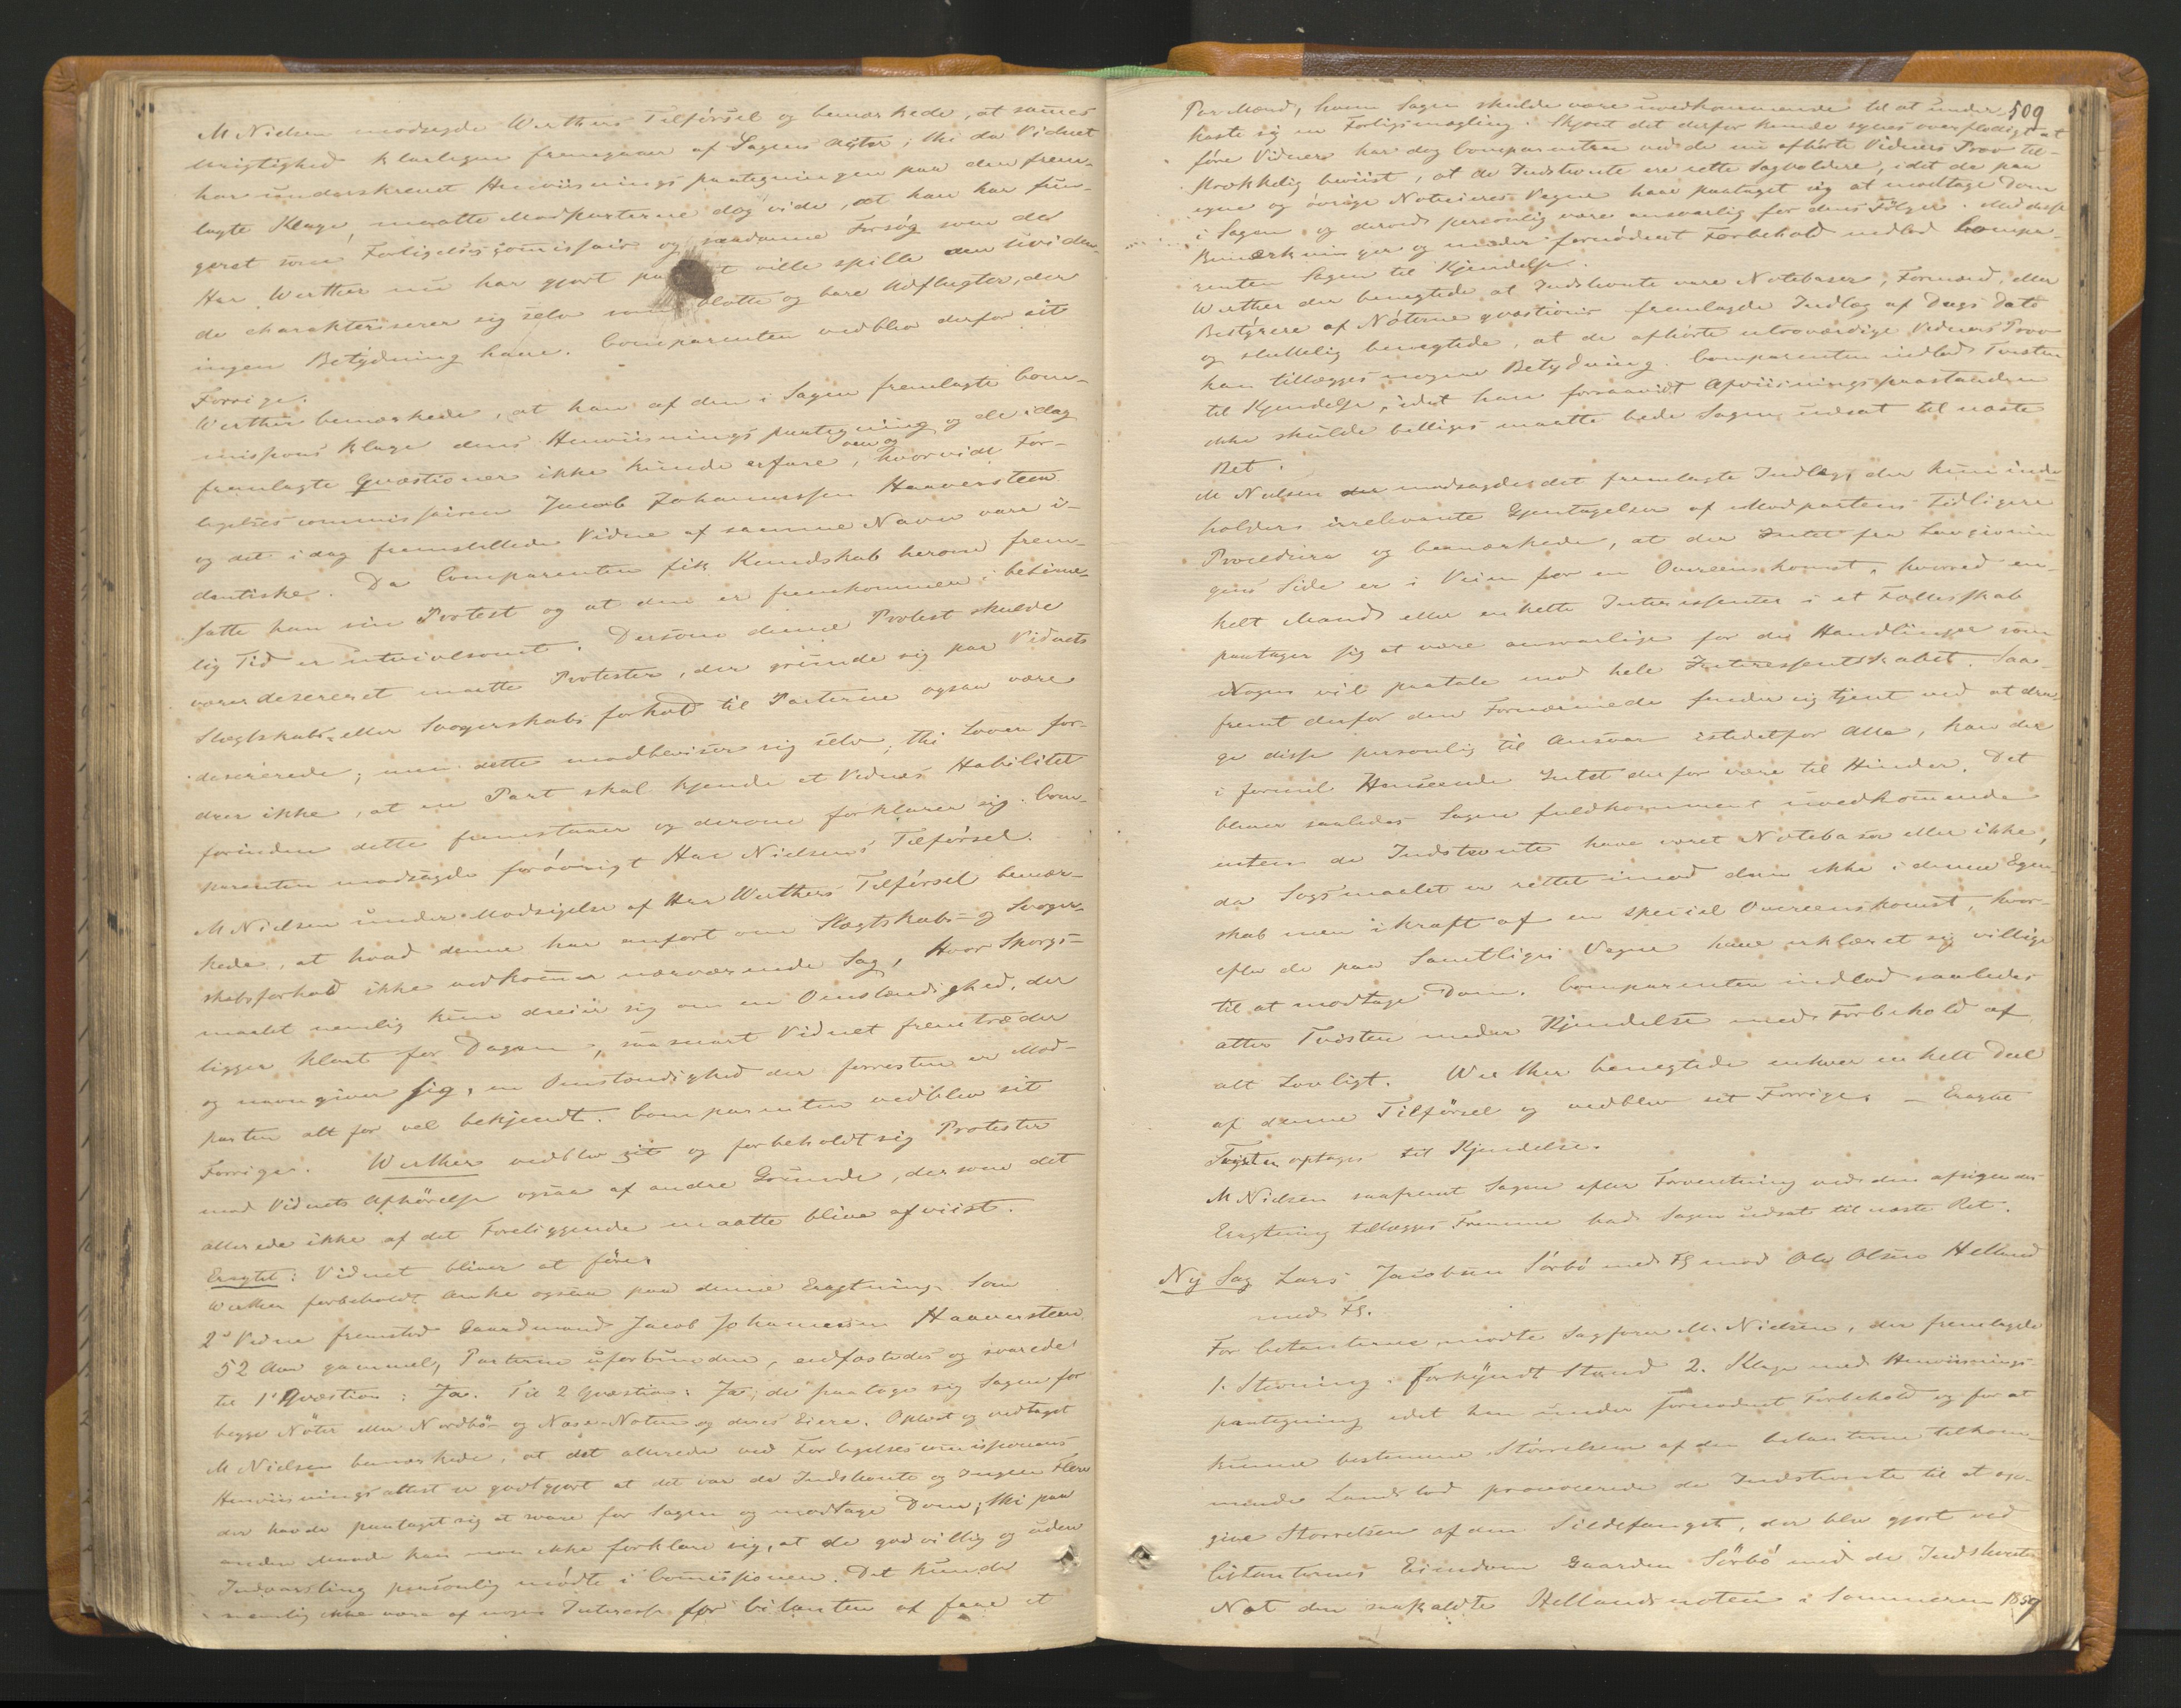 M Nielsen modsagde Werthers Tilførsel og bemærkede, at sammes
Urigtighed klarligen fremgaaer af Sagens Acter; thi da Vidnet
har underskrevet Henviisningspaategningen paa den frem-
lagte Klage, maatte Modparterne dog vide, at han har fun-
geret som Forligelsescommissair og saadanne Forsøg som de
Her Werther nu har gjort paa at ville spille den uviden-
de charakteriserer sig selv som blotte og bare Udflugter, der
ingen Betydning have. Comparenten vedblev derfor sit
Forrige.
Werther bemærkede, at han af den i Sagen fremlagte Com-
missions Klage dens Henviisningspaategning og de idag
fremlagte Qvæstioner ikke kunde erfare, hvorvidt For-
ligelsescommissairen Jacob Johannessen Haaversteen
og det i dag fremstillede Vidne af samme Navn vare i-
dentiske. Da Comparenten fik Kundskab herom frem-
satte han sin Protest og at den er fremkommen i betime-
lig Tid er utvivlsomt. Dersom denne Protest skulde
være deserert maatte Protester, der grunde sig paa Vidnets
Slægtskabs- eller Svogerskabs forhold til Parterne ogsaa være
deserterede; men dette modbeviser sig selv; thi Loven for-
drer ikke, at en Part skal kjende et Vidnes Habilitet
forinden dette fremstaaer og derom forklarer sig. Com-
parenten modsagde forøvrigt Her Nielsens Tilførsel.
M Nielsen under Modsigelse af Her Werthers Tilførsel bemær-
kede, at hvad denne har anført om Slægtskabs- og Svoger-
skabsforhold ikke vedkommer nærværende Sag, hvor Spørgs-
maalet nemlig kun dreier sig om en Omstændighed, der
ligger klart for Dagen, saasnart Vidnet fremtræder
og navngiver sig, en Omstændighed der forresten er Mod-
parten alt for vel bekjendt. Comparenten vedblev sit
Forrige. Werther vedblev sit og forbeholdt sig Protester
mod Vidnets Afhørelse ogsaa af andre Grunde, dersom det
allerede ikke af det Foreliggende maatte blive afviist.
Eragtet: Vidnet bliver at føre.
Werther forbeholdt Anke ogsaa paa denne Eragtning. Som
2d Vidne fremstod Gaardmand Jacob Johannesen Haaversteen
52 Aar gammel, Parterne uforbunden, eedfæstedes og svarede
til 1 Qvæstion: Ja. Til 2 Qvæstion: Ja; de paatoge sig Sagen for
begge Nøter eller Nordbø- og Nase-Noten og deres Eiere. Oplæst og vedtaget
M Nielsen bemærkede, at det allerede ved Forligelsescommissionens
Henviisningsattest er godtgjort at det var de Indstevnte og Ingen Flere
der havde paataget sig at svare for Sagen og modtage Dom; thi paa
anden Maade kan man ikke forklare sig, at de godvillig og uden
Indvarsling personlig mødte i Commissionen. Det kunde
nemlig ikke være af nogen Interesse for Citanten at faae et
509
Par Mænd, hvem Sagen skulde være uvedkommende til at under-
kaste sig en Forligsmægling. Skjønt det derfor kunde synes overflødigt at
føre Vidner har dog Comparenten ved de nu afhørte Vidners Prov til-
strækkelig beviist, at de Indstevnte ere rette Sagvoldere, idet de paa
egne og øvrige Noteieres Vegne have paataget sig at modtage Dom
i Sagen og derved personlig være ansvarlig for dens Følger. Med disse
Bemærkninger og under fornødent Forbehold indlod Compa-
renten Sagen til Kjendelse.
Werther der benegtede at Indstevnte vare Notebaser, Formænd, eller
Bestyrere af Nøterne qvæstionis fremlagde Indlæg af Dags Dato
og sluttelig benegtede, at de afhørte utroværdige Vidners Prov
kan tillægges nogen Betydning. Comparenten indlod Tvisten
til Kjendelse, idet han forsaavidt Afviisningspaastanden
ikke skulde billiges maatte bede Sagen udsat til næste
Ret.
M Nielsen modsagde det fremlagte Indlæg, der kun inde-
holder irrelevante Gjentagelser af Modpartens tidligere
Procedura og bemærkede, at der Intet fra Lovgivnin-
gens Side er i Veien for en Overeenskomst, hvorved en-
kelt Mand eller enkelte Interessenter i et Fællesskab
paatager sig at være ansvarlige for de Handlinger som
Nogen vil paatale mod hele Interessentskabet. Saa-
fremt derfor den Fornærmede finder sig tjent ved at dra-
ge disse personlig til Ansvar istedetfor Alle, kan der
i formel Henseende Intet derfor være til Hinder. Det
bliver saaledes Sagen fuldkomment uvedkommende
enten de Indstevnte have været Notebaser eller ikke,
da Søgsmaalet er rettet imod dem ikke i denne Egen-
skab men i Kraft af en speciel Overeenskomst, hvor-
efter de paa Samtliges Vegne have erklæret sig villige
til at modtage Dom. Comparenten indlod saaledes
atter Tvisten under Kjendelse med Forbehold af
alt Lovligt. Werther benegtede enhver enkelt Deel
af denne Tilførsel og vedblev sit Forrige. – Eragtet
Tvisten optages til Kjendelse.
M Nielsen saafremt Sagen efter Forventning ved den afsigendes
Eragtning tillægges Fremme bad Sagen udsat til næste Ret.
Ny Sag Lars Jacobsen Sørbø med Fl mod Ole Olsen Helland
med Fl.
For Citanterne mødte Sagfører M. Nielsen, der fremlagde
1. Stevning. Forkyndt Stævn 2. Klage med Henviisnings-
paategning idet han under fornødent Forbehold og for at
kunne bestemme Størrelsen af den Citanterne tilkom-
mende Landslod provocerede de Indstevnte til at op-
give Størrelsen af den Sildefangst, der blev gjort ved
Citanternes Eiendom Gaarden Sørbø med de Indstevntes
Not den saakaldte Hellandsnoten i Sommeren 1859